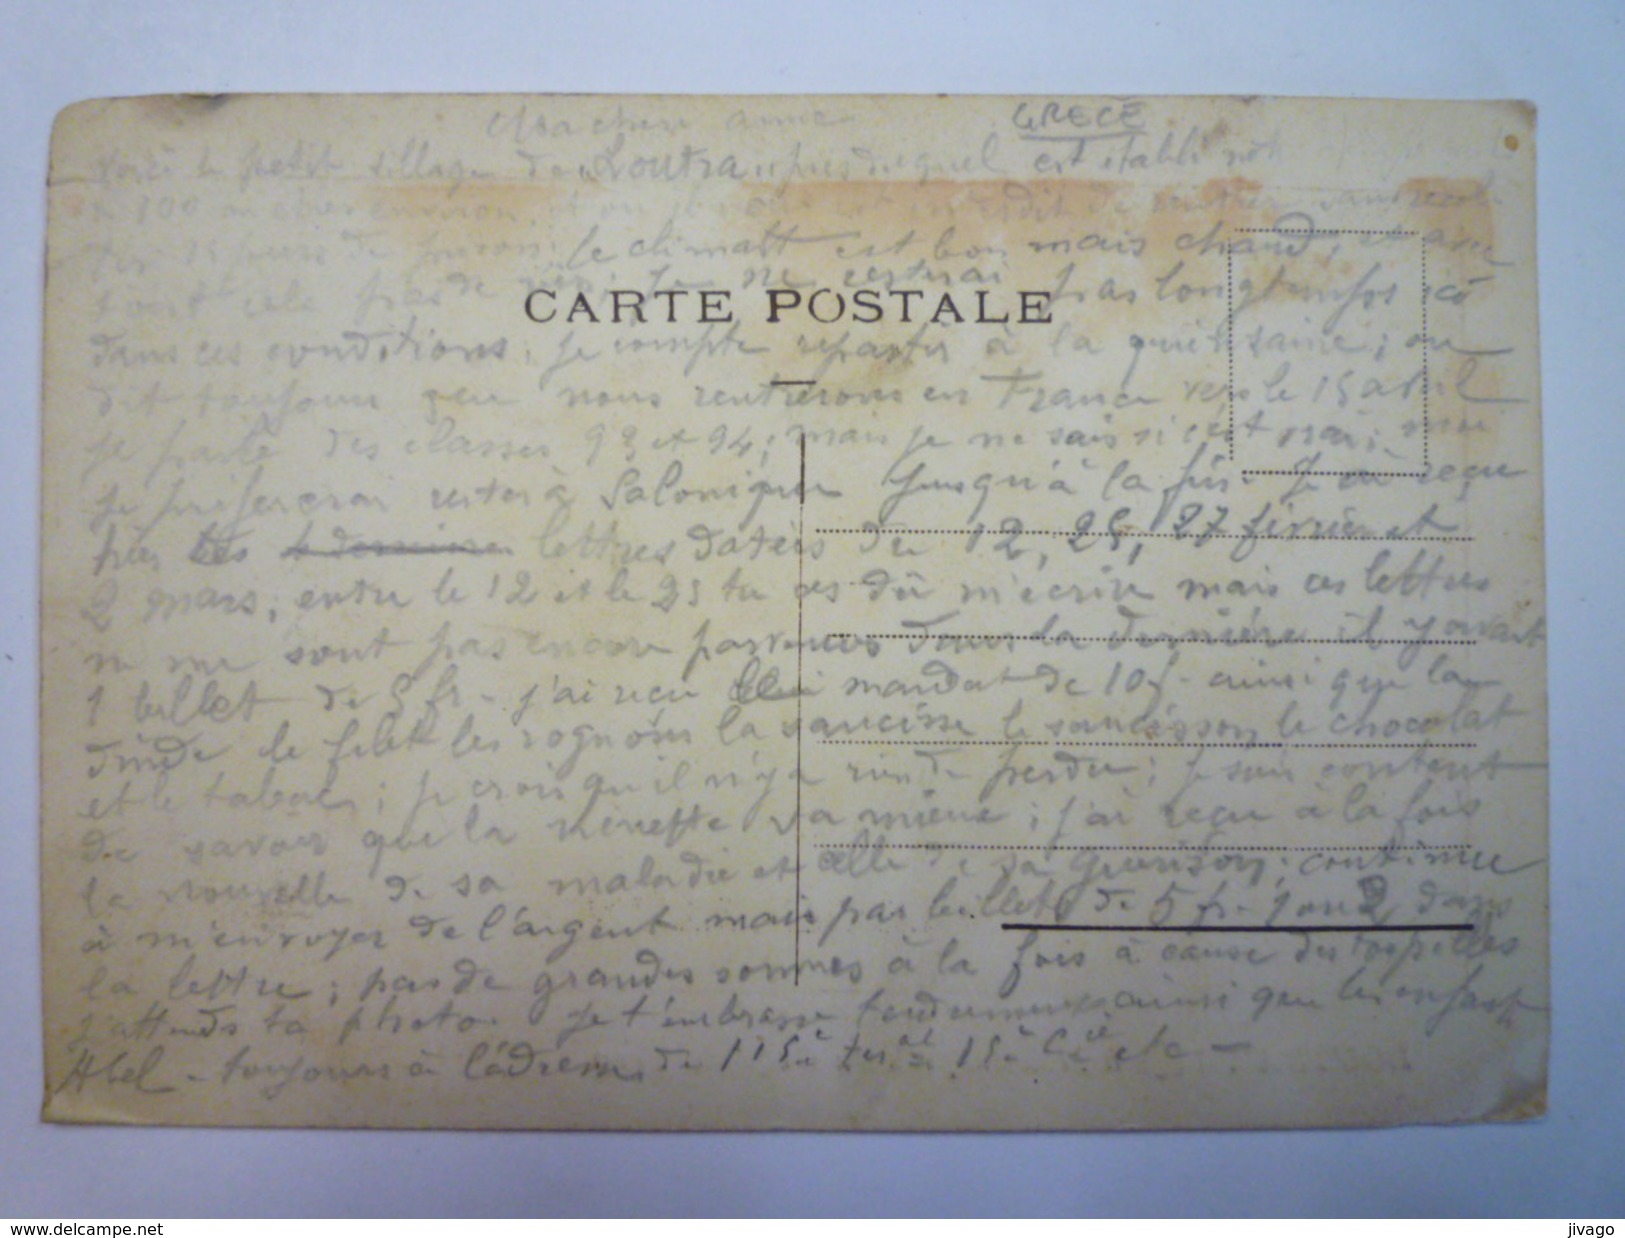 Ma chère amie GRECE
Voici le petit village de Loutra près duquel est établi
100 mètres environ, et où il nous est interdit de
jours de prison; le climatt est bon mais chaud, et avec
tout cela pas de je ne resterai pas longtemps ici
CARTE POSTALE
dans ces conditions, je compte repartir à la quinzaine; on
dit toujours que nous rentrerons en France vers le 15 avril
je parle des classes 93 et 94; mais je ne sais si c'est vrai; moi
je prefererai rester à Salonique jusqu'à la fin. Je ai reçu
hier tes lettres datées du 12, 25, 27 février et
2 mars; entre le 12 et le 25 tu as dû m'écrire mais ces lettres
ne me sont pas encore parvenues dans la dernière il y avait
1 billet de 5 fr - j'ai reçu le mandat de 10 f. ainsi que la
dinde le filet les rognons la saucisse le saucisson le chocolat
et le tabac; je crois qu'il n'y a rien de perdu; je suis content
de savoir que la va mieux; j'ai reçu à la fois
la nouvelle de sa maladie et celle de sa guerison; continue
à m'envoyer de l'argent mais par billets de 5 fr. 1 ou 2 dans
la lettre; pas de grandes sommes à la fois à cause des
j'attends ta photo. Je t'embrasse tendrement ainsi que les enfants
Abel - toujours à l'adresse du 115è Ter.al 15è Cie etc -
www.delcampe.net
jivago